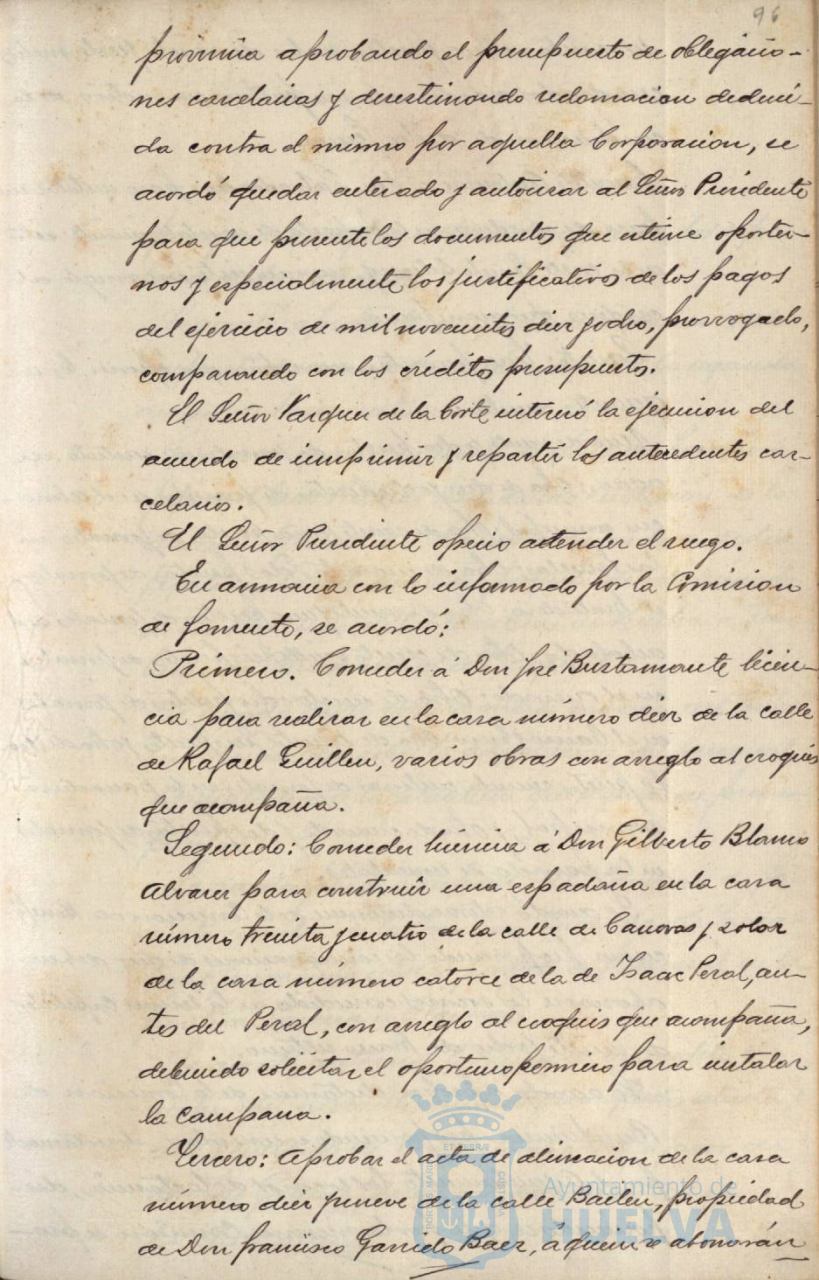 96
provincia aprobando el presupuesto de obligacio-
nes carcelarias y desestimando reclamacion deduci-
da contra el mismo por aquella Corporacion, se
acordó quedar enterado y autorizar al Señor Presidente
para que presente los documentos que estime oportu-
nos y especialmente los justificativos de los pagos
del ejercicio de mil novecientos diez y ocho, prorrogado,
comparando con los créditos presupuestos.
El Señor Vazquez de la Corte interesó la ejecucion del
acuerdo de imprimir y repartir los antecedentes car-
celarios.
El Señor Presidente ofrecio atender el ruego.
En armonia con lo informado por la Comision
de fomento, se acordó:
Primero. Conceder á Don José Bustamante licen-
cia para realizar en la casa número diez de la calle
de Rafael Guillen, varios obras con arreglo al croquis
que acompaña.
Segundo: Conceder licencia á Don Gilberto Blanco
Alvarez para construir una espadaña en la casa
número treinta y cuatro de la calle de Canovas y solar
de la casa número catorce de la de Isaac Peral, an-
tes del Peral, con arreglo al croquis que acompaña,
debiendo solicitar el oportuno permiso para instalar
la campana.
Tercero: Aprobar el acta de alineacion de la casa
número diez y nueve de la calle Bailen, propiedad
de Don Francisco Garrido Baez, á quien se abonarán
Ayuntamiento de
HUELVA